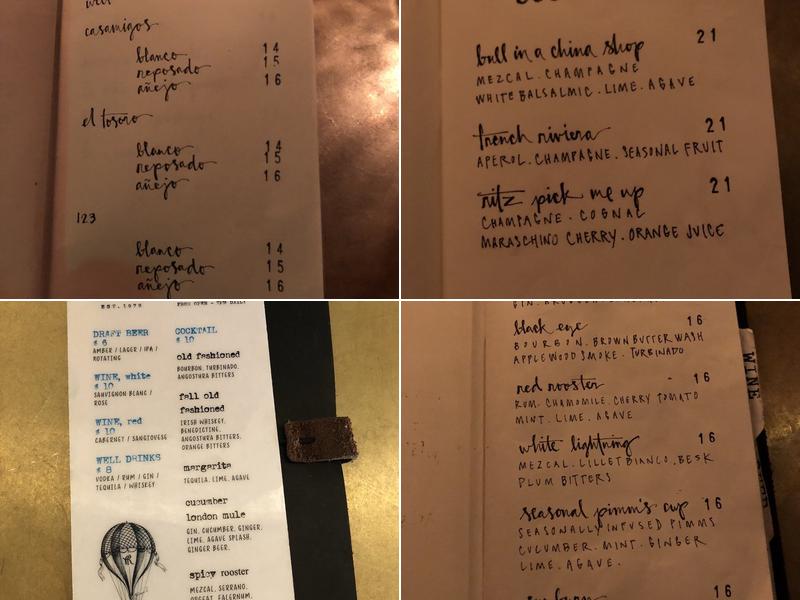 well
casamigos
blanco 14
reposado 15
añejo 16
el tosoro
blanco 14
reposado 15
añejo 16
123
blanco 14
reposado 15
añejo 16
bull in a china shop 21
MEZCAL . CHAMPAGNE
WHITE BALSALMIC . LIME . AGAVE
french riviera 21
APEROL . CHAMPAGNE . SEASONAL FRUIT
ritz pick me up 21
CHAMPAGNE . COGNAC
MARASCHINO CHERRY . ORANGE JUICE
EST. 1978
FROM OPEN - 7PM DAILY
DRAFT BEER
$ 6
AMBER / LAGER / IPA /
ROTATING
WINE, white
$ 10
SAUVIGNON BLANC /
ROSE
WINE, red
$ 10
CABERNET / SANGIOVESE
WELL DRINKS
$ 8
VODKA / RUM / GIN /
TEQUILA / WHISKEY
COCKTAIL
$ 10
old fashioned
BOURBON, TURBINADO,
ANGOSTURA BITTERS
fall old
fashioned
IRISH WHISKEY,
BENEDICTINE,
ANGOSTURA BITTERS,
ORANGE BITTERS
margarita
TEQUILA, LIME, AGAVE
cucumber
london mule
GIN, CUCUMBER, GINGER,
LIME, AGAVE SPLASH,
GINGER BEER.
spicy rooster
MEZCAL, SERRANO,
ORGEAT, FALERNUM,
black eye 16
BOURBON . BROWN BUTTER WASH
APPLEWOOD SMOKE . TURBINADO
red rooster 16
RUM . CHAMOMILE . CHERRY TOMATO
MINT . LIME . AGAVE
white lightning 16
MEZCAL . LILLET BIANCO . BESK
PLUM BITTERS
seasonal pimm's cup 16
SEASONALLY INFUSED PIMMS
CUCUMBER . MINT . GINGER
LIME . AGAVE .
16
WINE